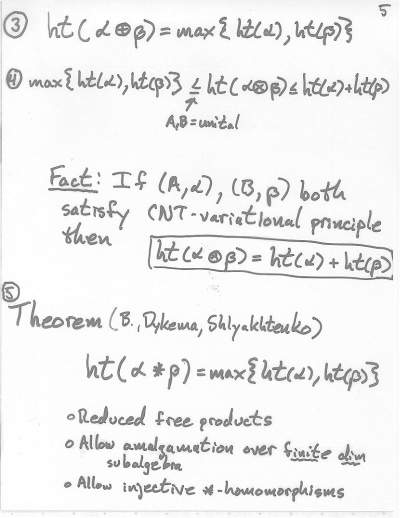 5
③ ht(α⊕β) = max{ht(α), ht(β)}
④ max{ht(α), ht(β)} ≤ ht(α⊗β) ≤ ht(α)+ht(β)
↑
A,B = unital
Fact: If (A,α), (B,β) both
satisfy CNT-variational principle
then
ht(α⊗β) = ht(α) + ht(β)
⑤
Theorem (B., Dykema, Shlyakhtenko)
ht(α * β) = max{ht(α), ht(β)}
◦ Reduced free products
◦ Allow amalgamation over finite dim
subalgebra
◦ Allow injective *-homomorphisms